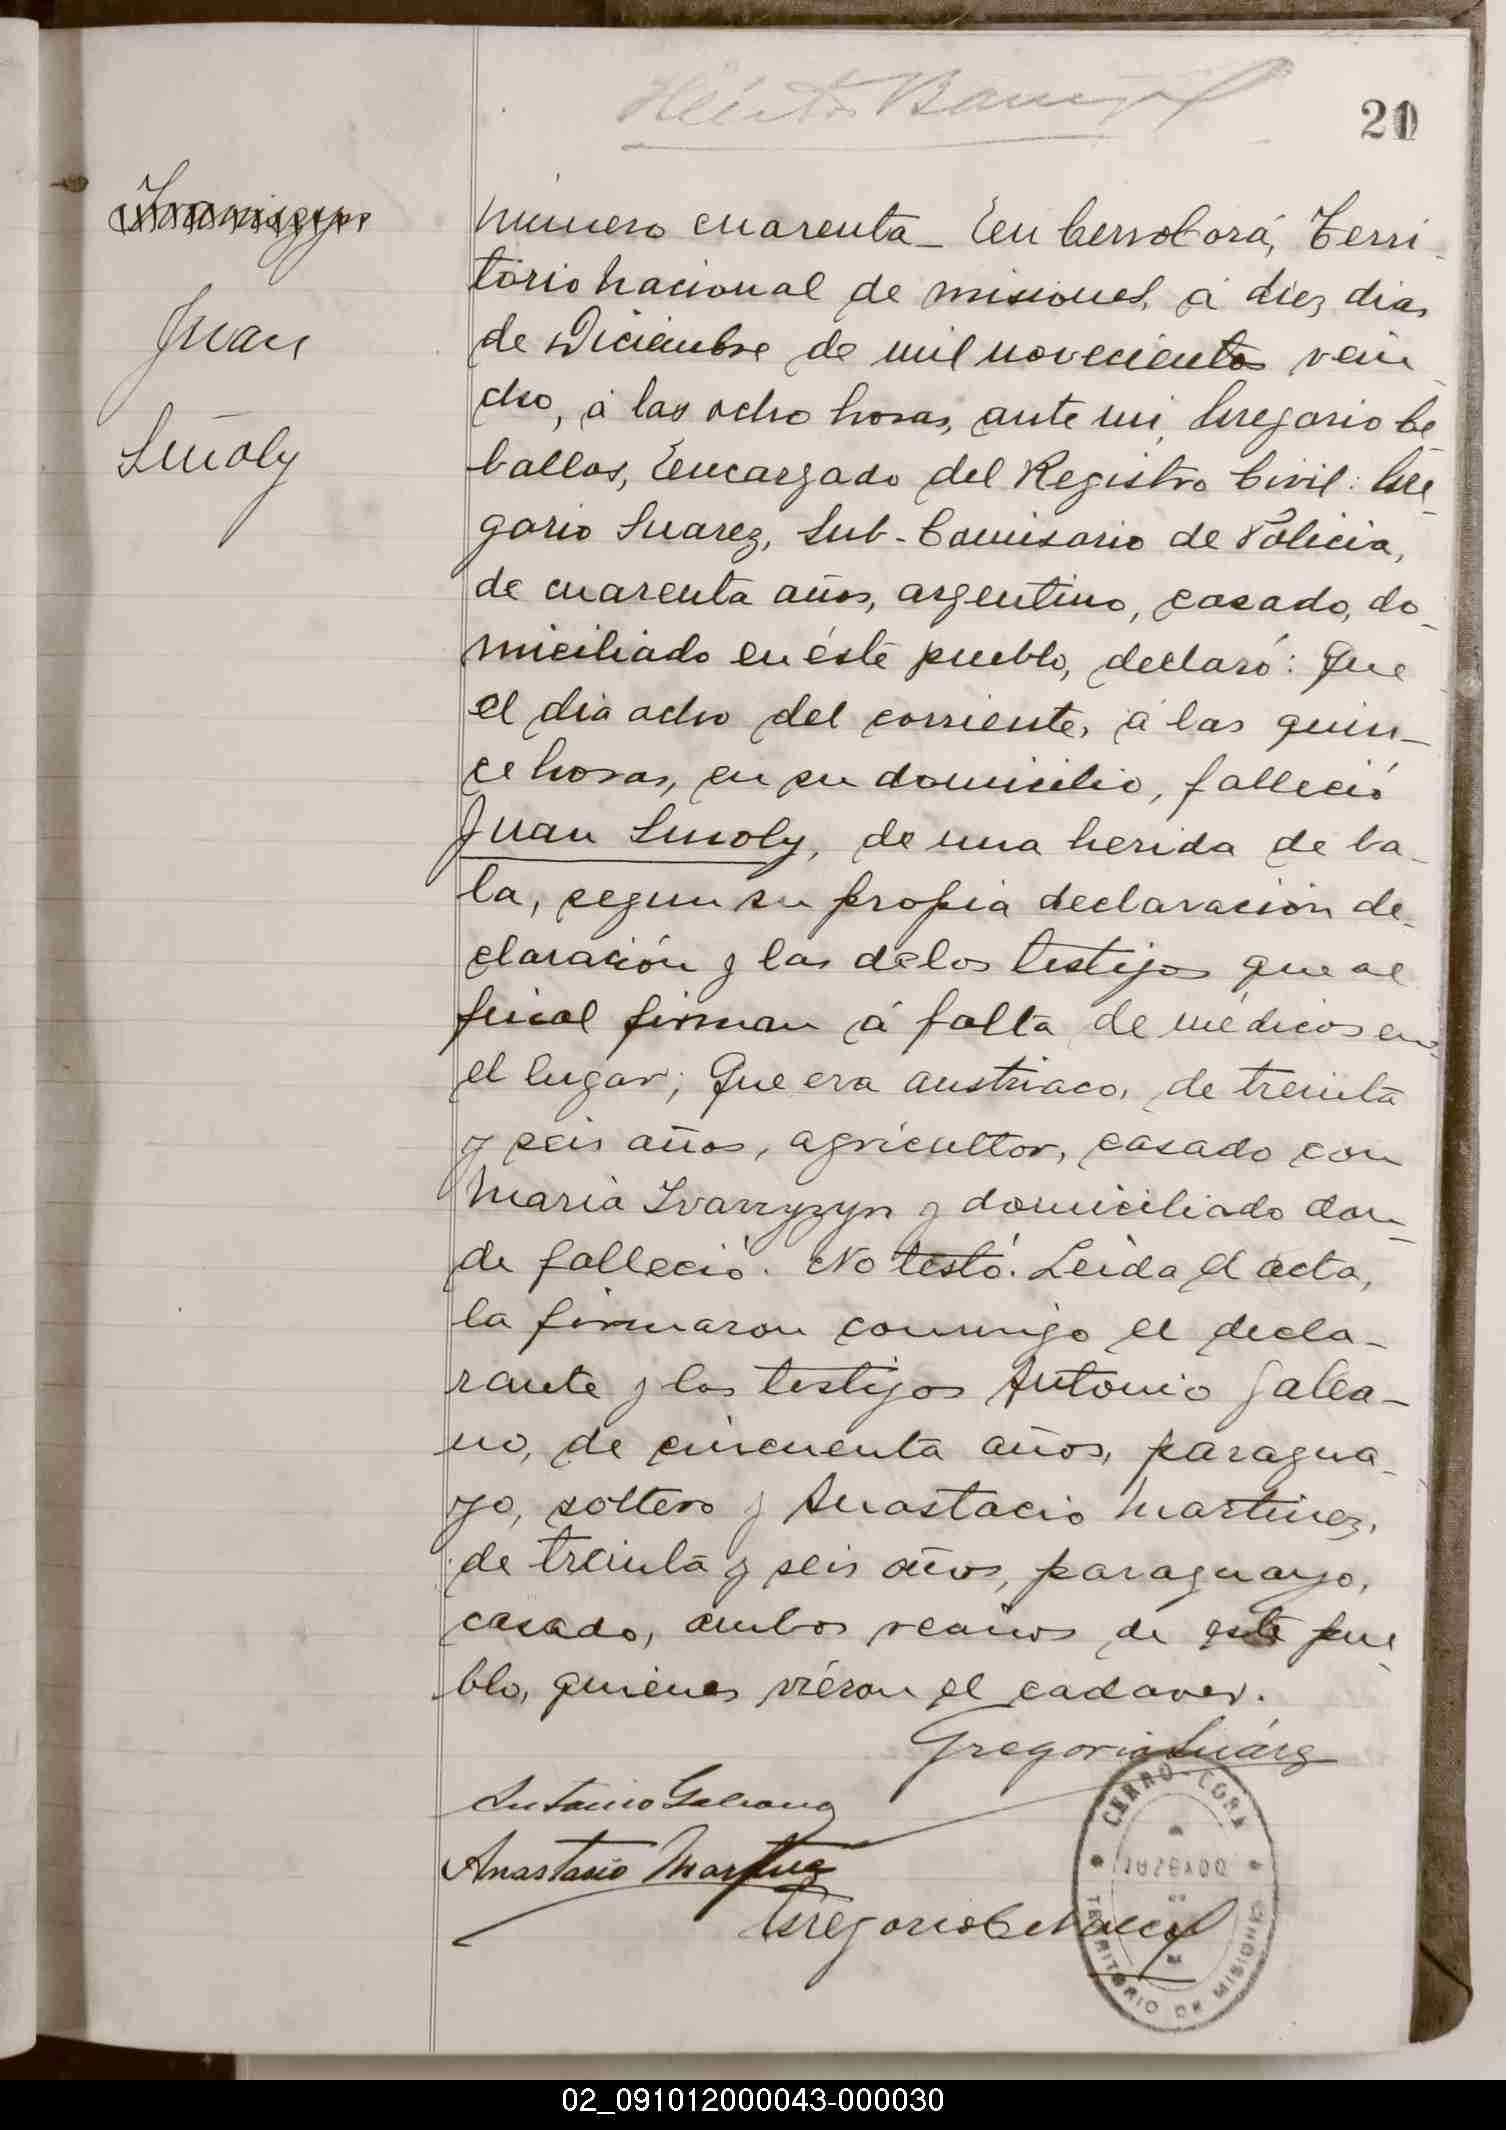 Héctor Ba
20
Juan
Smoly
Número cuarenta_ En Cerro Corá, Terri_
torio Nacional de Misiones, á diez dias
de Diciembre de mil novecientos vein_
cho, á las ocho horas, ante mi, Gregorio Ce_
ballos, Encargado del Registro Civil: Gre_
gorio Suarez, Sub-Comisario de Policia,
de cuarenta años, argentino, casado, do_
miciliado en éste pueblo, declaró: Que
el dia ocho del corriente, á las quin_
ce horas, en su domicilio, falleció
Juan Smoly, de una herida de ba_
la, segun su propia declaración de_
claración y las de los testigos que al
final firman á falta de médicos en
el lugar; Que era austriaco, de treinta
y seis años, agricultor, casado con
Maria y domiciliado don_
de falleció. No testó. Leida el acta,
la firmaron conmigo el decla_
rante y los testigos Antonio Galea_
no, de cincuenta años, paragua_
yo, soltero y Anastacio Martinez,
de treinta y seis años, paraguayo,
casado, ambos vecinos de este pue_
blo, quienes viéron el cadaver.
Gregorio Suárez
Antonio Galeano
Anastacio Martinez
Gregorio Ceballos
CERRO-CORA
JUZGADO
DE
PAZ
TERRITORIO DE MISIONES
02_091012000043-000030